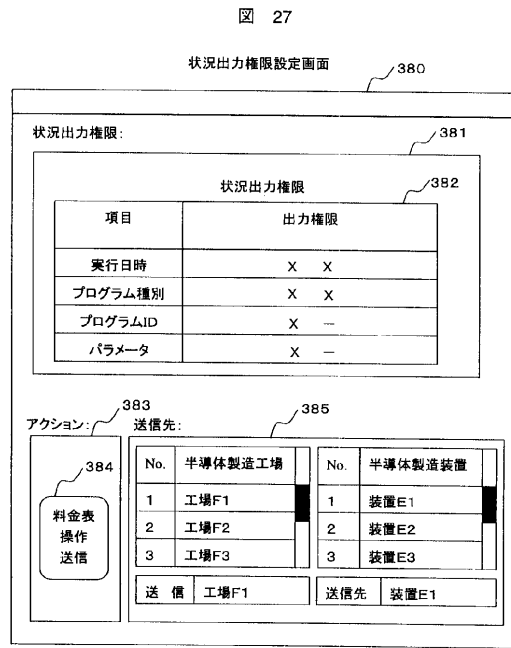 図 27
状況出力権限設定画面
380
状況出力権限:
381
状況出力権限
382
項目 出力権限
実行日時 X X
プログラム種別 X X
プログラムID X －
パラメータ X －
アクション:
383
384
料金表
操作
送信
送信先:
385
No. 半導体製造工場
1 工場F1
2 工場F2
3 工場F3
送 信 工場F1
No. 半導体製造装置
1 装置E1
2 装置E2
3 装置E3
送信先 装置E1